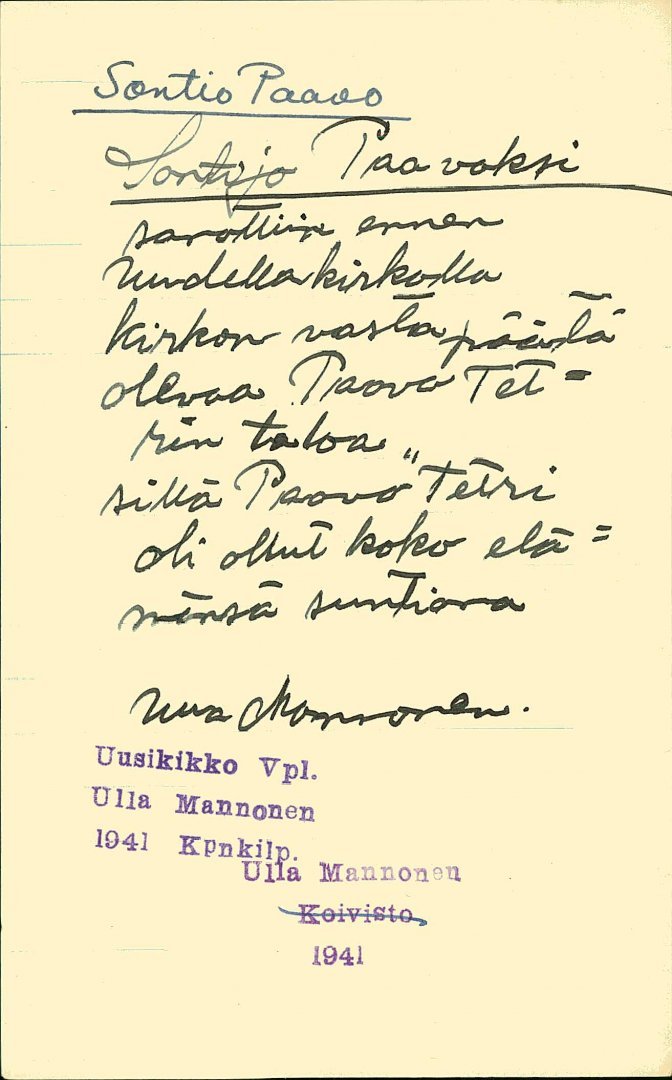 Søntio Paavo
Sontijo Paavoksi
sanottiin ennen
Uudellakirkolla
kirkon vasta päätä
olevaa Paavo Tet=
rin taloa„
sillä Paavo Tetri
oli ollut koko elä=
mänsä suntiona
Ulla Mannonen.
Uusikikko Vpl.
Ulla Mannonen
1941 Kpnkilp.
Ulla Mannonen
Koivisto
1941